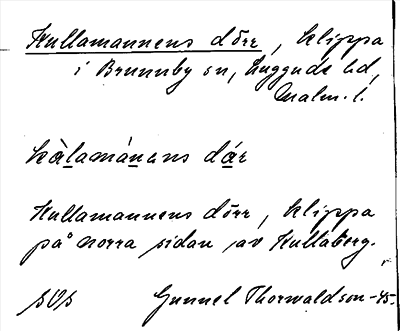 Kullamannens dörr, klippa
i Brunnby sn, Luggude hd,
Malm. l.
kàlamánans dár
Kullamannens dörr, klippa
på norra sidan av Kullaberg.
SOS Gunnel Thorwaldson -45.